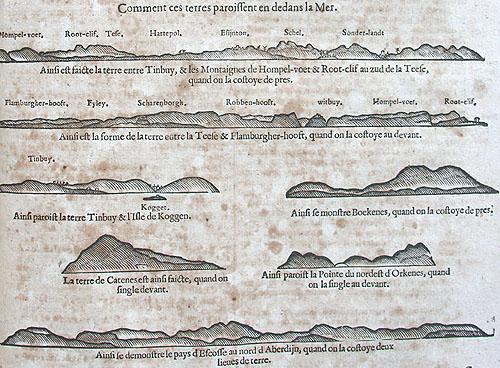 Comment ces terres paroissent en dedans la Mer.
Hompel-voet, Root-clif, Tese, Hattepol. Esijnton, Schel. Sonder-landt
Ainsi est faicte la terre entre Tinbuy, & les Montaignes de Hompel-voet & Root-clif au zud de la Teese,
quand on la costoye de pres.
Flamburgher-hooft, Fyley. Scharenborgh. Robben-hooft, witbuy. Hompel-voet. Root-clif,
Ainsi est la forme de la terre entre la Teese & Flamburgher-hooft, quand on la costoye au devant.
Tinbuy.
Kogget.
Ainsi paroist la terre Tinbuy & l'Isle de Koggen.
Ainsi se monstre Boekenes, quand on la costoye de pres.
La terre de Catenes est ainsi faicte, quand on
single devant.
Ainsi paroist la Pointe du nordest d'Orkenes, quand
on la single au devant.
Ainsi se demonstre le pays d'Escosse au nord d'Aberdijn, quand on la costoye deux
lieues de terre.